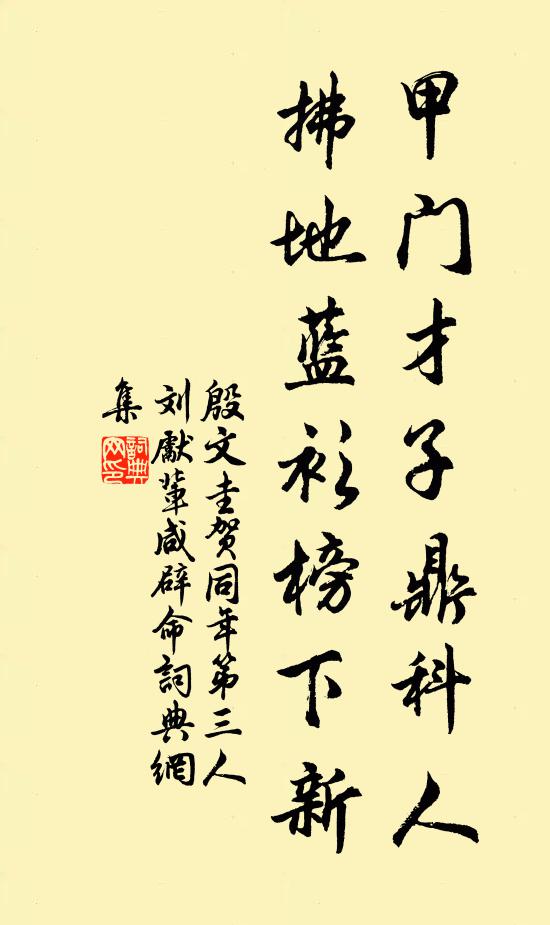 甲门才子鼎科人
拂地蓝衫榜下新
殷文圭贺同年第三人
刘献辈咸辟命词典網
集
詞典網印